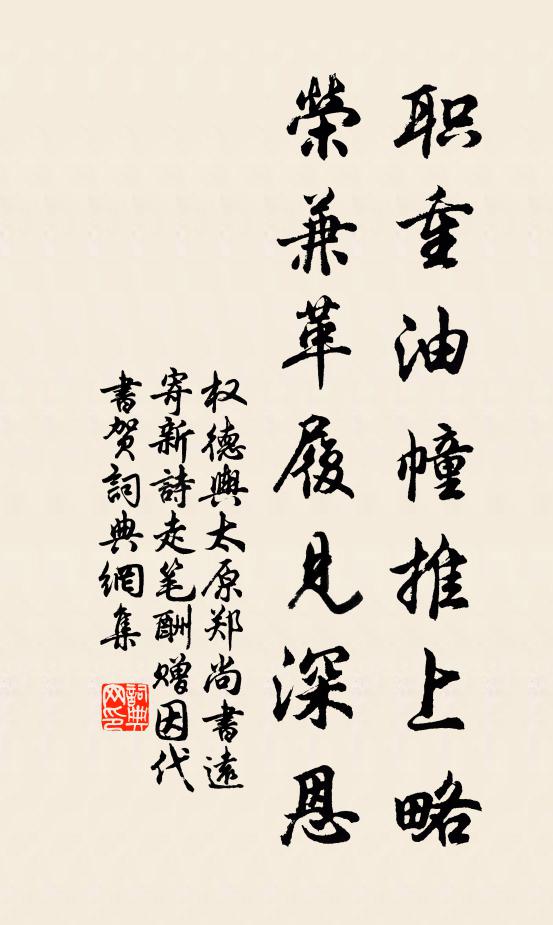 职重油幢推上略
荣兼革履見深恩
权德舆太原郑尚書遠
寄新詩走笔酬赠因代
書贺詞典網集
詞典网印